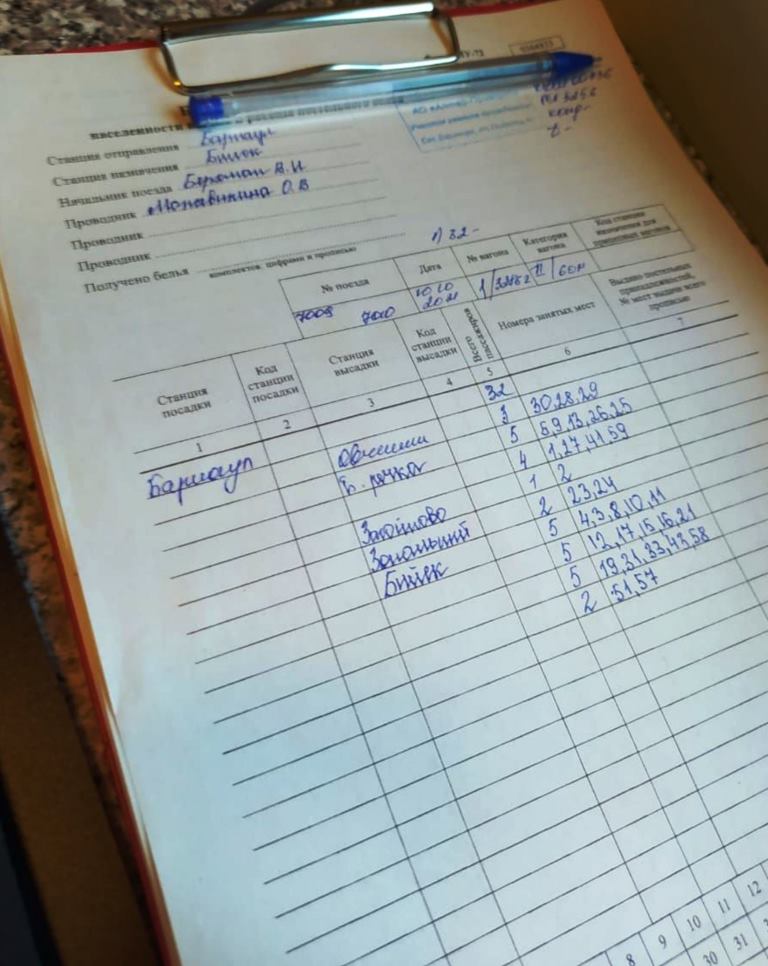 населенности
Станция отправления Барнаул
Станция назначения Бийск
Начальник поезда В.И
Проводник О.В
Проводник
Проводник
Получено белья
комплектов цифрами и прописью
1) 32-
№ поезда Дата № вагона Категория вагона Код станции назначения для прицепных вагонов
7009 7010 10.10
Станция посадки Код станции посадки Станция высадки Код станции высадки Всего пассажиров Номера занятых мест Выдано постельных принадлежностей, № мест выдачи всего прописью
1 2 3 4 5 6 7
32
Барнаул 3 30,28,29
Б. речка 5 5,9,13,26,25
4 1,27,41,59
1 2
Зональный 2 23,24
Бийск 5 4,3,8,10,11
5 12,17,15,16,21
5 19,31,33,43,58
2 51,57
8 9 10 11 12
30 31